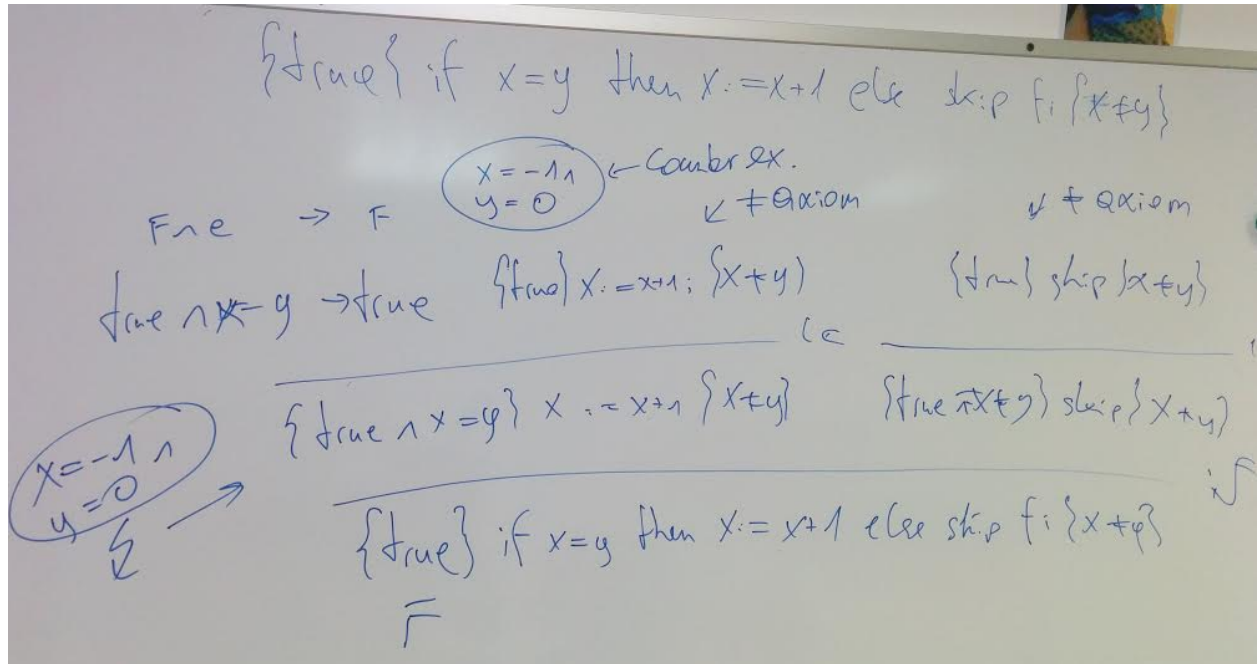 {true} if x=y then x:=x+1 else skip fi {x≠y}
x=-1 ∧ ← Counter ex.
y=0 ↙ ≠ axiom ↙ ≠ axiom
F∧e → F
true ∧ x=y → true {true} x:=x+1; {x≠y} {true} skip {x≠y}
{true ∧ x=y} x:=x+1 {x≠y} {true ∧ x≠y} skip {x≠y}
x=-1 ∧
y=0
if
{true} if x=y then x:=x+1 else skip fi {x≠y}